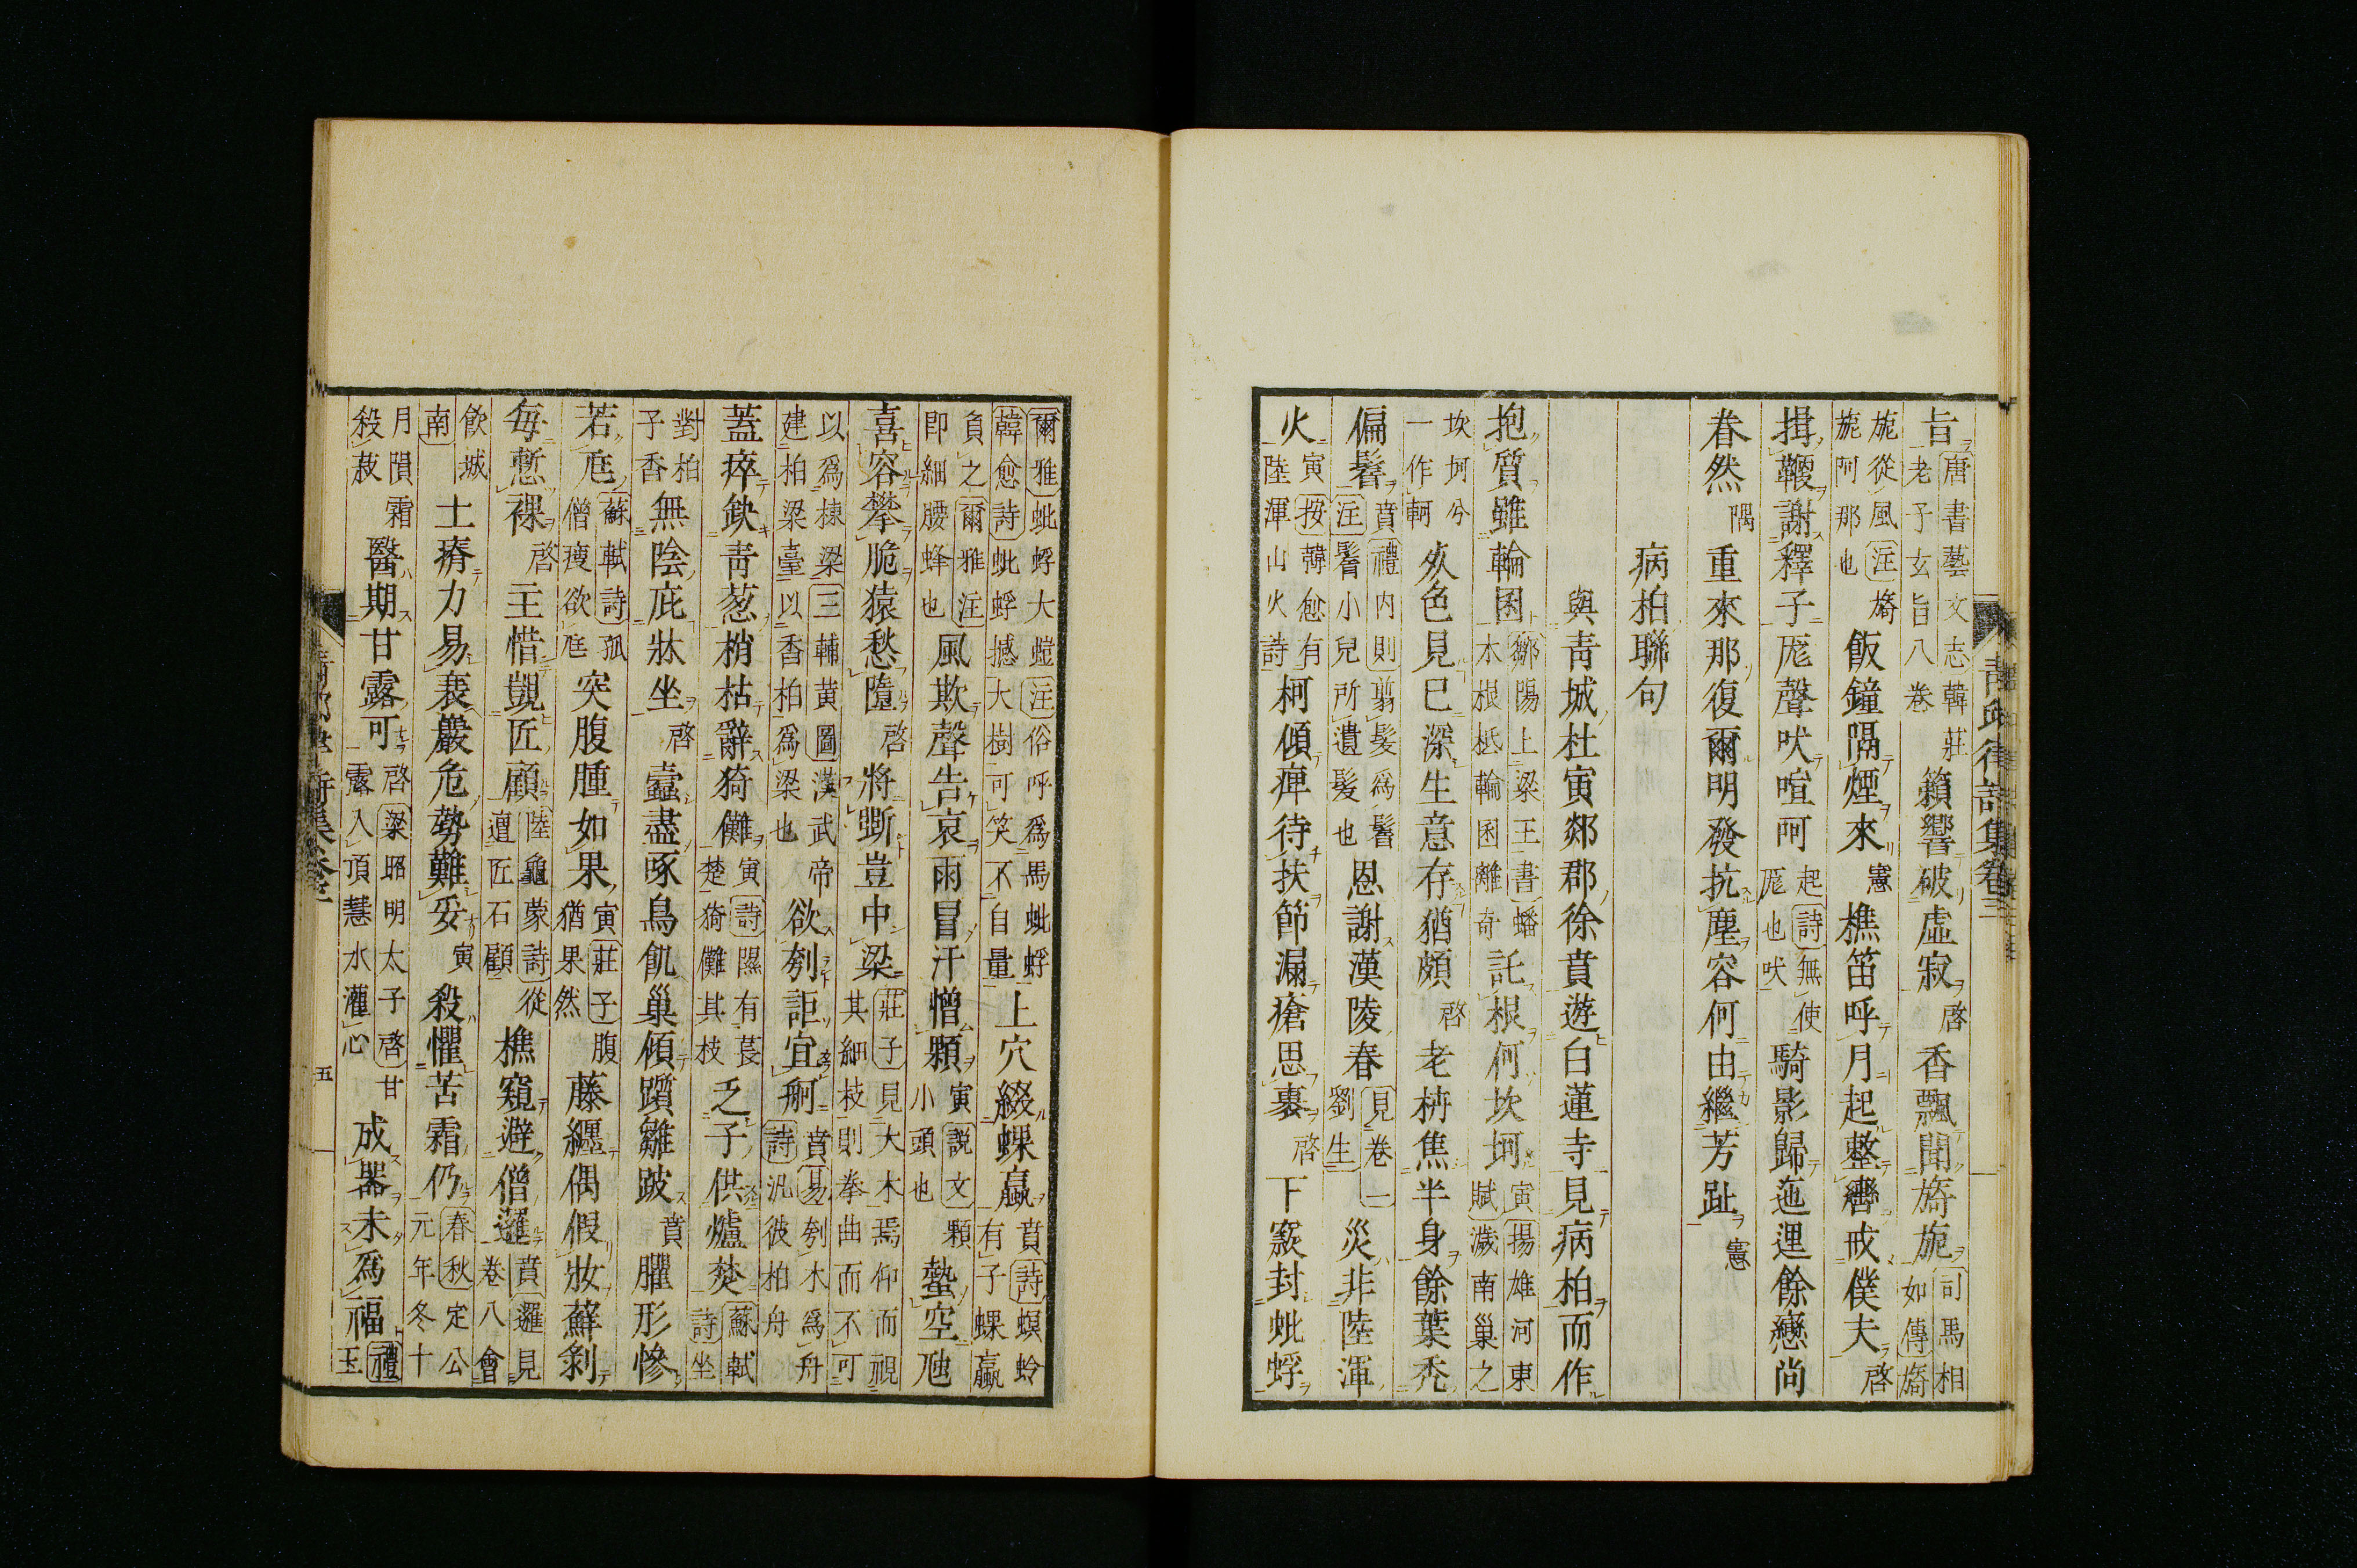 旨唐書藝文志韓莊老子玄旨八卷籟響破虛寂啓香飄聞旖旎司馬相如傳旖
旎從風注旖旎阿那也飯鐘隔煙來憲樵笛呼月起整轡戒僕夫啓
揖鞭謝釋子厖聲吠喧呵起詩無使厖也吠騎影歸迤逦餘戀尚
眷然隅重來那復爾明發抗塵容何由繼芳趾憲
病柏聯句
與青城杜寅郯郡徐賁遊白蓮寺見病柏而作
抱質雖輪囷鄒陽上梁王書蟠木根柢輪囷離奇託根何坎坷寅揚雄河東賦濊南巢之
坎坷兮一作軻夾色見已深生意存猶頗啓老枿焦半身餘葉禿
偏鬌賁禮内則翦髮爲鬌注鬌小兒所遺髮也恩謝漢陵春見卷一劉生災非陸渾
火寅按韓愈有陸渾山火詩柯傾痺待扶節漏瘡思裹啓下竅封蚍蜉
爾雅蚍蜉大螘注俗呼爲馬蚍蜉韓愈詩蚍蜉撼大樹可笑不自量上穴綴蜾蠃賁詩螟蛉有子蜾蠃
負之爾雅注即細腰蜂也風欺聲告哀雨冒汗憎顆寅説文顆小頭也蟄空虺
喜容攀脆猿愁墮啓將斲豈中梁莊子見大木焉仰而視其細枝則拳曲而不可
以爲棟梁三輔黃圖漢武帝建柏梁臺以香柏爲梁也欲刳詎宜舸賁易刳木爲舟詩汎彼柏舟
蓋瘁缺靑葱梢枯辭猗儺寅詩隰有萇楚猗儺其枝乏子供爐焚蘇軾詩坐
對柏子香無陰庇牀坐啓蠹盡啄鳥飢巢傾躓雛跛賁臞形慘
若尫蘇軾詩孤僧瘦欲尫突腹腫如果寅莊子腹猶果然藤纒偶假妝蘚剝
每慙裸啓主惜覬匠顧陸龜蒙詩從遭匠石顧樵窺避僧邏賁邏見卷八會
飮城南土瘠力易衰巖危勢難妥寅殺懼苦霜仍春秋定公元年冬十
月隕霜殺菽醫期甘露可啓梁昭明太子啓甘露入頂慧水灌心成器未爲福禮玉
五